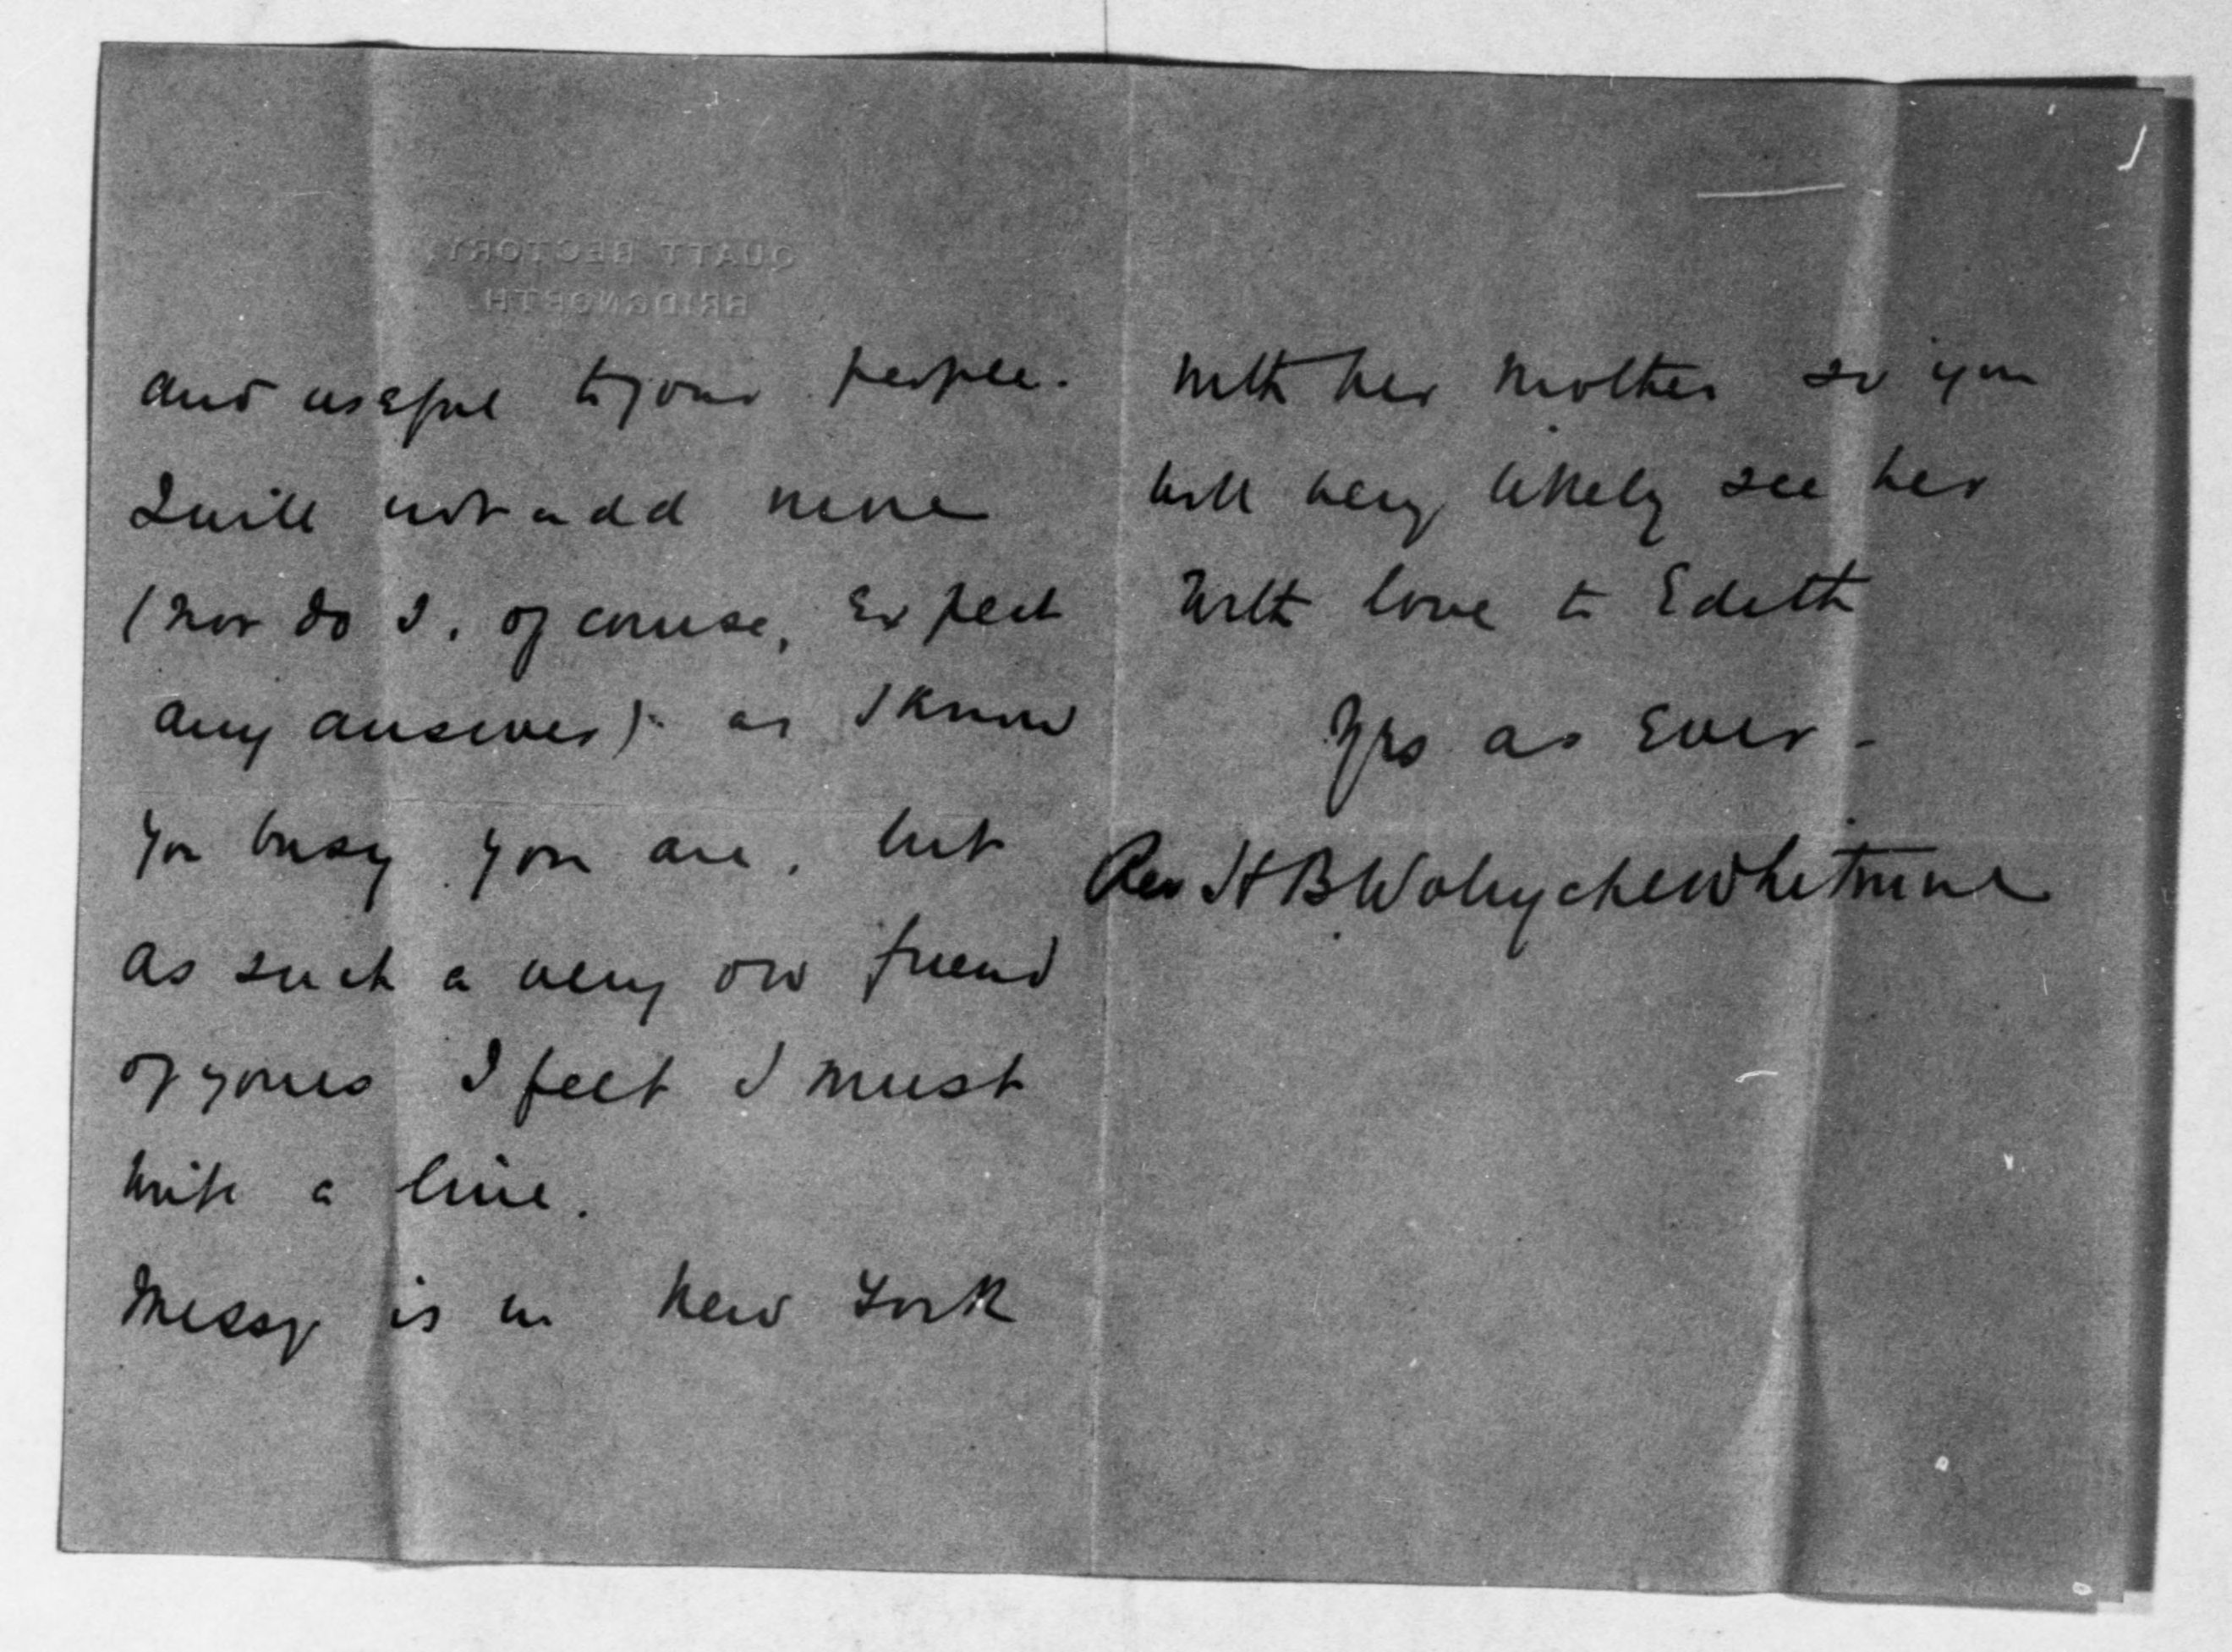 QUATT RECTORY
BRIDGNORTH.
and useful to your people.
I will not add more
(nor do I, of course, expect
any answer)- as I know
you busy you are, but
as such a very old friend
of yours I felt I must
write a line.
Messy is in New York
with her mother so you
will very likely see her
With love to Edith
Yrs as Ever -
Rev H B Wolryche Whitmore